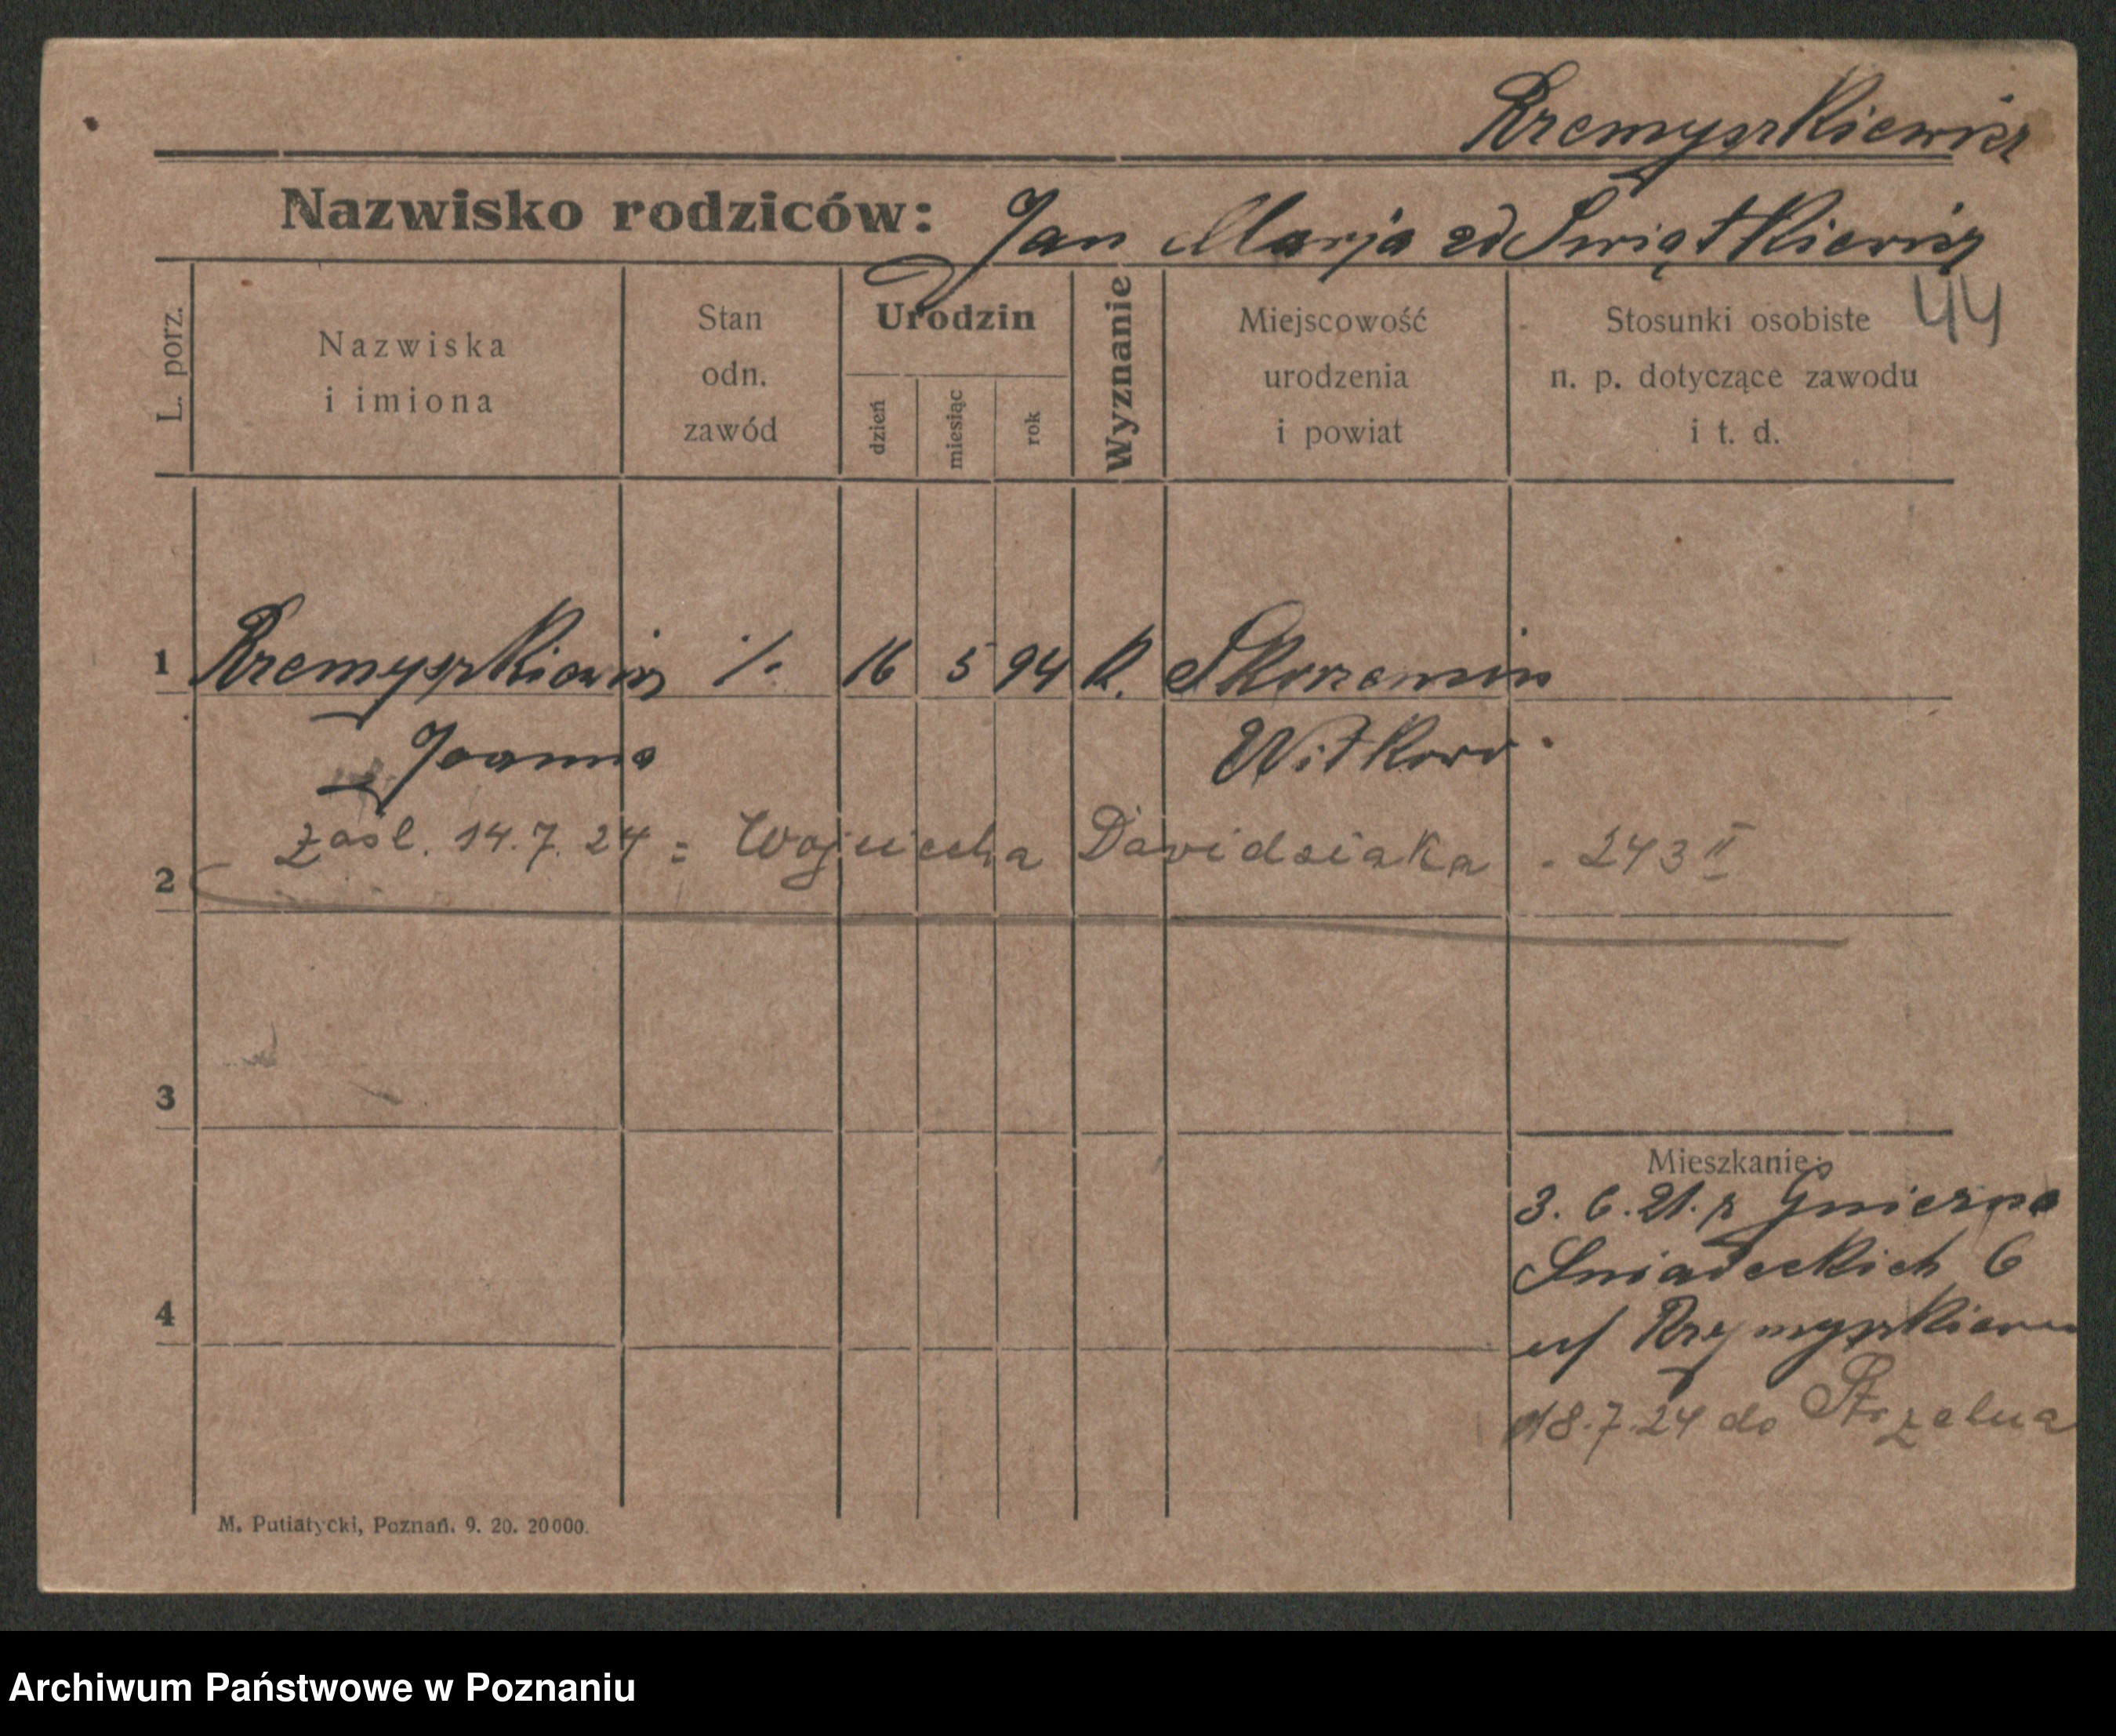 Krzemyszkiewicz
Nazwisko rodziców: Jan Marja zd Świątkiewicz
44
L. porz.
Nazwiska
i imiona
Stan
odn.
zawód
Urodzin
dzień
miesiąc
rok
Wyznanie
Miejscowość
urodzenia
i powiat
Stosunki osobiste
n. p. dotyczące zawodu
i t. d.
1 /. 16 5 94 k. Skorzencin
Joanna Witkowo
zaśl. 14.7.24 = Wojciecha Dawidziaka - 243 II
2
3
Mieszkanie:
3. 6. 21. z Gniezna
Sniadeckich 6
4
18.7.24 do Strzelna
M. Putiatycki, Poznań. 9. 20. 20000.
Archiwum Państwowe w Poznaniu